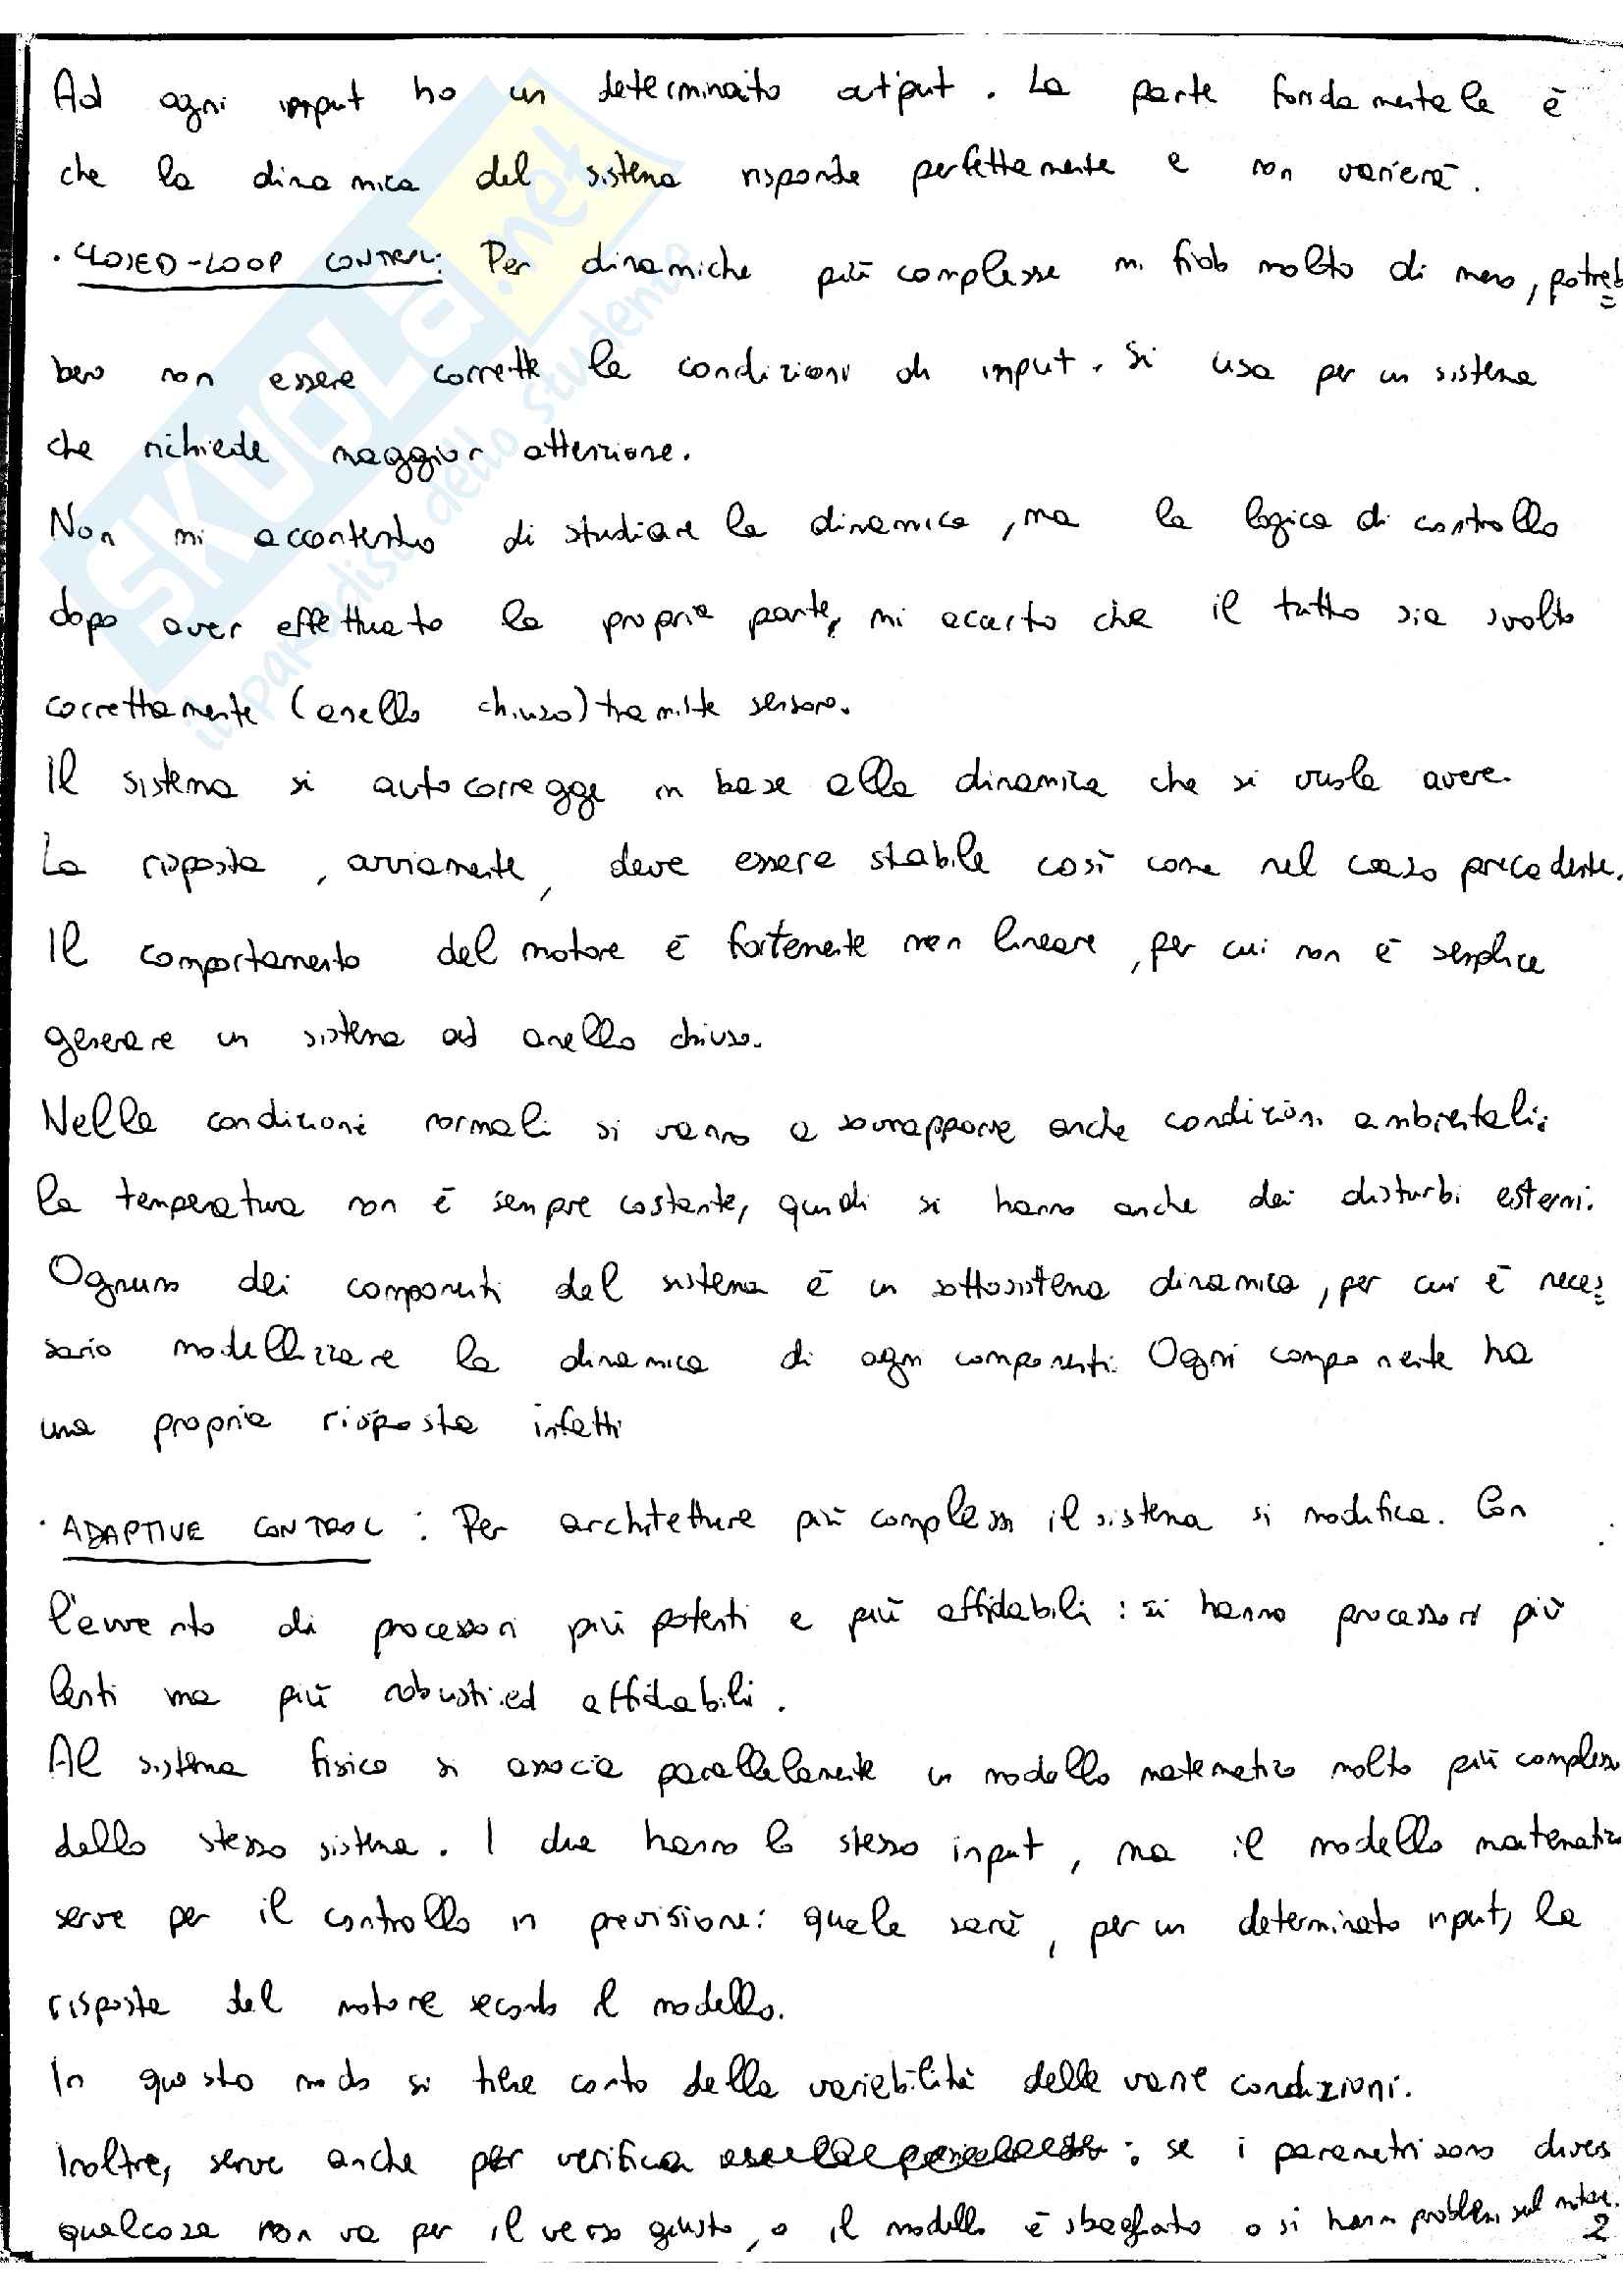 Ad ogni input ho un determinato output. La parte fondamentale è
che la dinamica del sistema risponde perfettamente e non varierà.
· CLOSED-LOOP CONTROL: Per dinamiche più complesse mi fido molto di meno, potreb
bero non essere corrette le condizioni di input. Si usa per un sistema
che richiede maggior attenzione.
Non mi accontento di studiare la dinamica, ma la logica di controllo
dopo aver effettuato la propria parte, mi accerto che il tutto sia svolto
correttamente (anello chiuso) tramite sensore.
Il sistema si autocorregge in base alla dinamica che si vuole avere.
La risposta, ovviamente, deve essere stabile così come nel caso precedente.
Il comportamento del motore è fortemente non lineare, per cui non è semplice
generare un sistema ad anello chiuso.
Nelle condizioni normali si vanno a sovrapporre anche condizioni ambientali:
la temperatura non è sempre costante, quindi si hanno anche dei disturbi esterni.
Ognuno dei componenti del sistema è un sottosistema dinamico, per cui è neces
sario modellizzare la dinamica di ogni componenti. Ogni componente ha
una propria risposta infatti
· ADAPTIVE CONTROL: Per architetture più complesse il sistema si modifica. Con
l'avvento di processori più potenti e più affidabili: si hanno processori più
lenti ma più robusti ed affidabili.
Al sistema fisico si associa parallelamente un modello matematico molto più complesso
dello stesso sistema. I due hanno lo stesso input, ma il modello matematico
serve per il controllo in previsione: quale sarà, per un determinato input, la
risposta del motore secondo il modello.
In questo modo si tiene conto della variabilità delle varie condizioni.
Inoltre, serve anche per verifica: se i parametri sono divers
qualcosa non va per il verso giusto, o il modello è sbagliato o si hanno problemi sul motore.
2
SKUOLA.net
il paradiso dello studente